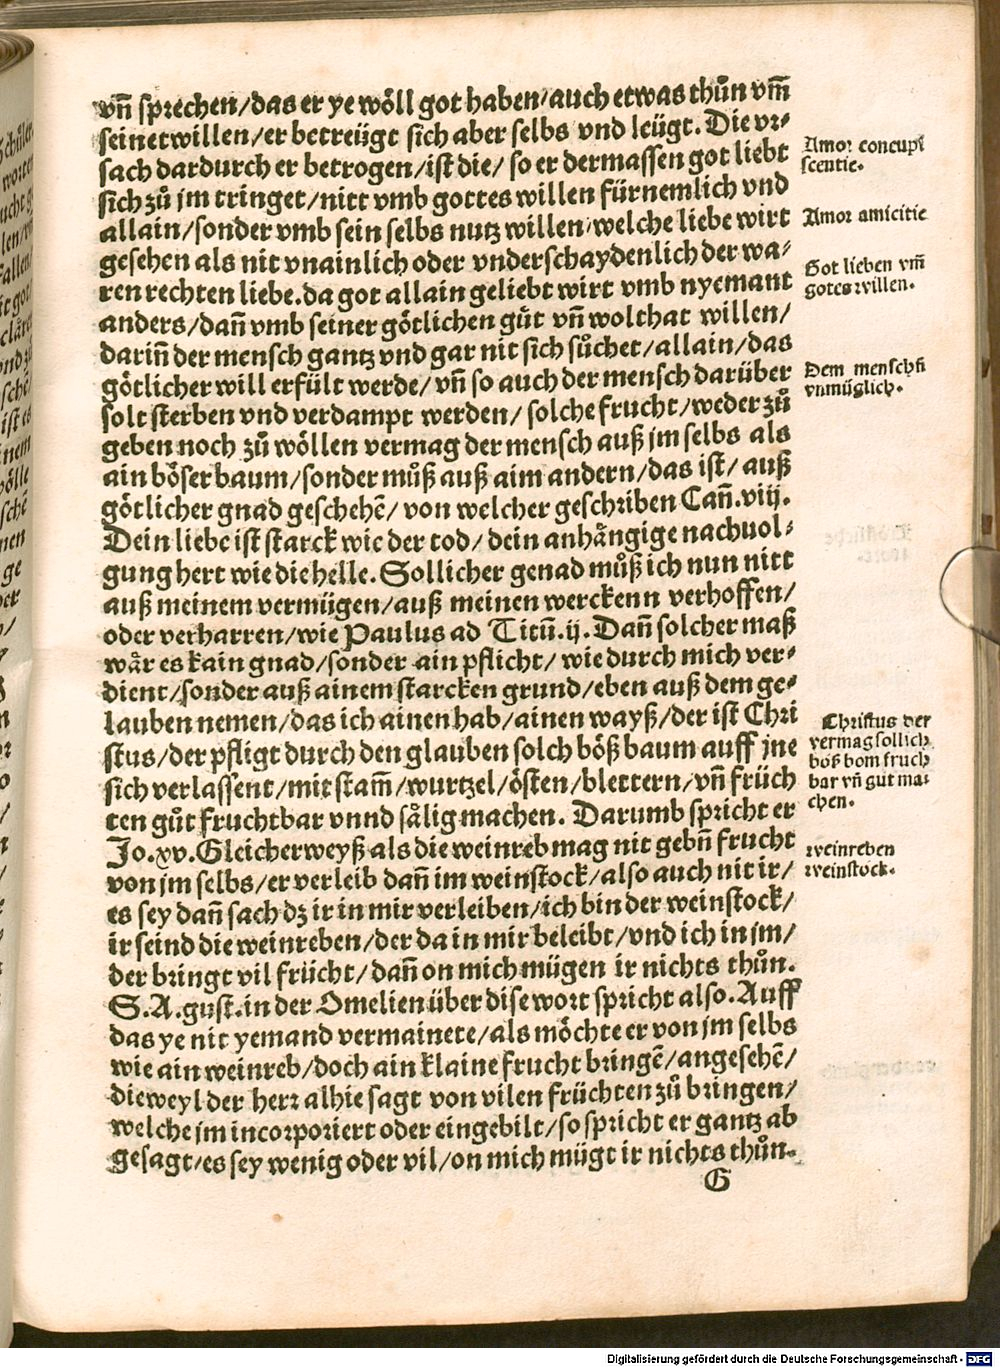 vñ sprechen/das er ye wöll got haben/auch etwas thůn vm̃
seinetwillen/er betreügt sich aber selbs vnd leügt. Die vr-
sach dardurch er betrogen/ist die/ so er dermassen got liebt
sich zů jm tringet/nitt vmb gottes willen fürnemlich vnd
allain/sonder vmb sein selbs nutz willen/welche liebe wirt
gesehen als nit vnainlich oder vnderschaydenlich der wa-
ren rechten liebe. da got allain geliebt wirt vmb nyemant
anders/dañ vmb seiner götlichen güt vñ wolthat willen/
dariñ der mensch gantz vnd gar nit sich sůchet/allain/das
götlicher will erfült werde/vñ so auch der mensch darüber
solt sterben vnd verdampt werden/ solche frucht/weder zů
geben noch zů wöllen vermag der mensch auß jm selbs als
ain böser baum/sonder můß auß aim andern/das ist/ auß
götlicher gnad geschehẽ/ von welcher geschriben Cañ.viij.
Dein liebe ist starck wie der tod/ dein anhängige nachuol-
gung hert wie die helle. Sollicher genad můß ich nun nitt
auß meinem vermügen/auß meinen werckenn verhoffen/
oder verharren/wie Paulus ad Titũ.ij. Dañ solcher maß
wår es kain gnad/sonder ain pflicht/ wie durch mich ver-
dient/sonder auß ainem starcken grund/eben auß dem ge-
lauben nemen/das ich ainen hab/ainen wayß/der ist Chri
stus/der pfligt durch den glauben solch böß baum auff jne
sich verlassent/mit stam̃/wurtzel/östen/blettern/vñ früch
ten gůt fruchtbar vnnd sålig machen. Darumb spricht er
Jo.xv. Gleicher weyß als die weinreb mag nit gebñ frucht
von jm selbs/er verleib dañ im weinstock/also auch nit ir/
es sey dañ sach dz ir in mir verleiben/ich bin der weinstock/
ir seind die weinreben/der da in mir beleibt/vnd ich in jm/
der bringt vil frücht/dañ on mich mügen ir nichts thůn.
S.A.gust.in der Omelien über dise wort spricht also. Auff
das ye nit yemand vermainete/als möchte er von jm selbs
wie ain weinreb/doch ain klaine frucht bringẽ/angesehẽ/
dieweyl der herr alhie sagt von vilen früchten zů bringen/
welche jm incorporiert oder eingebilt/so spricht er gantz ab
gesagt/es sey wenig oder vil/on mich mügt ir nichts thůn.
G
Amor concupi
scentie.
Amor amicitie
Got lieben vm̃
gotes willen.
Dem menschñ
vnmüglich.
Christus der
vermag sollich
böß bom fruch
bar vñ gůt ma-
chen.
weinreben
weinstock.
Digitalisierung gefördert durch die Deutsche Forschungsgemeinschaft - DFG